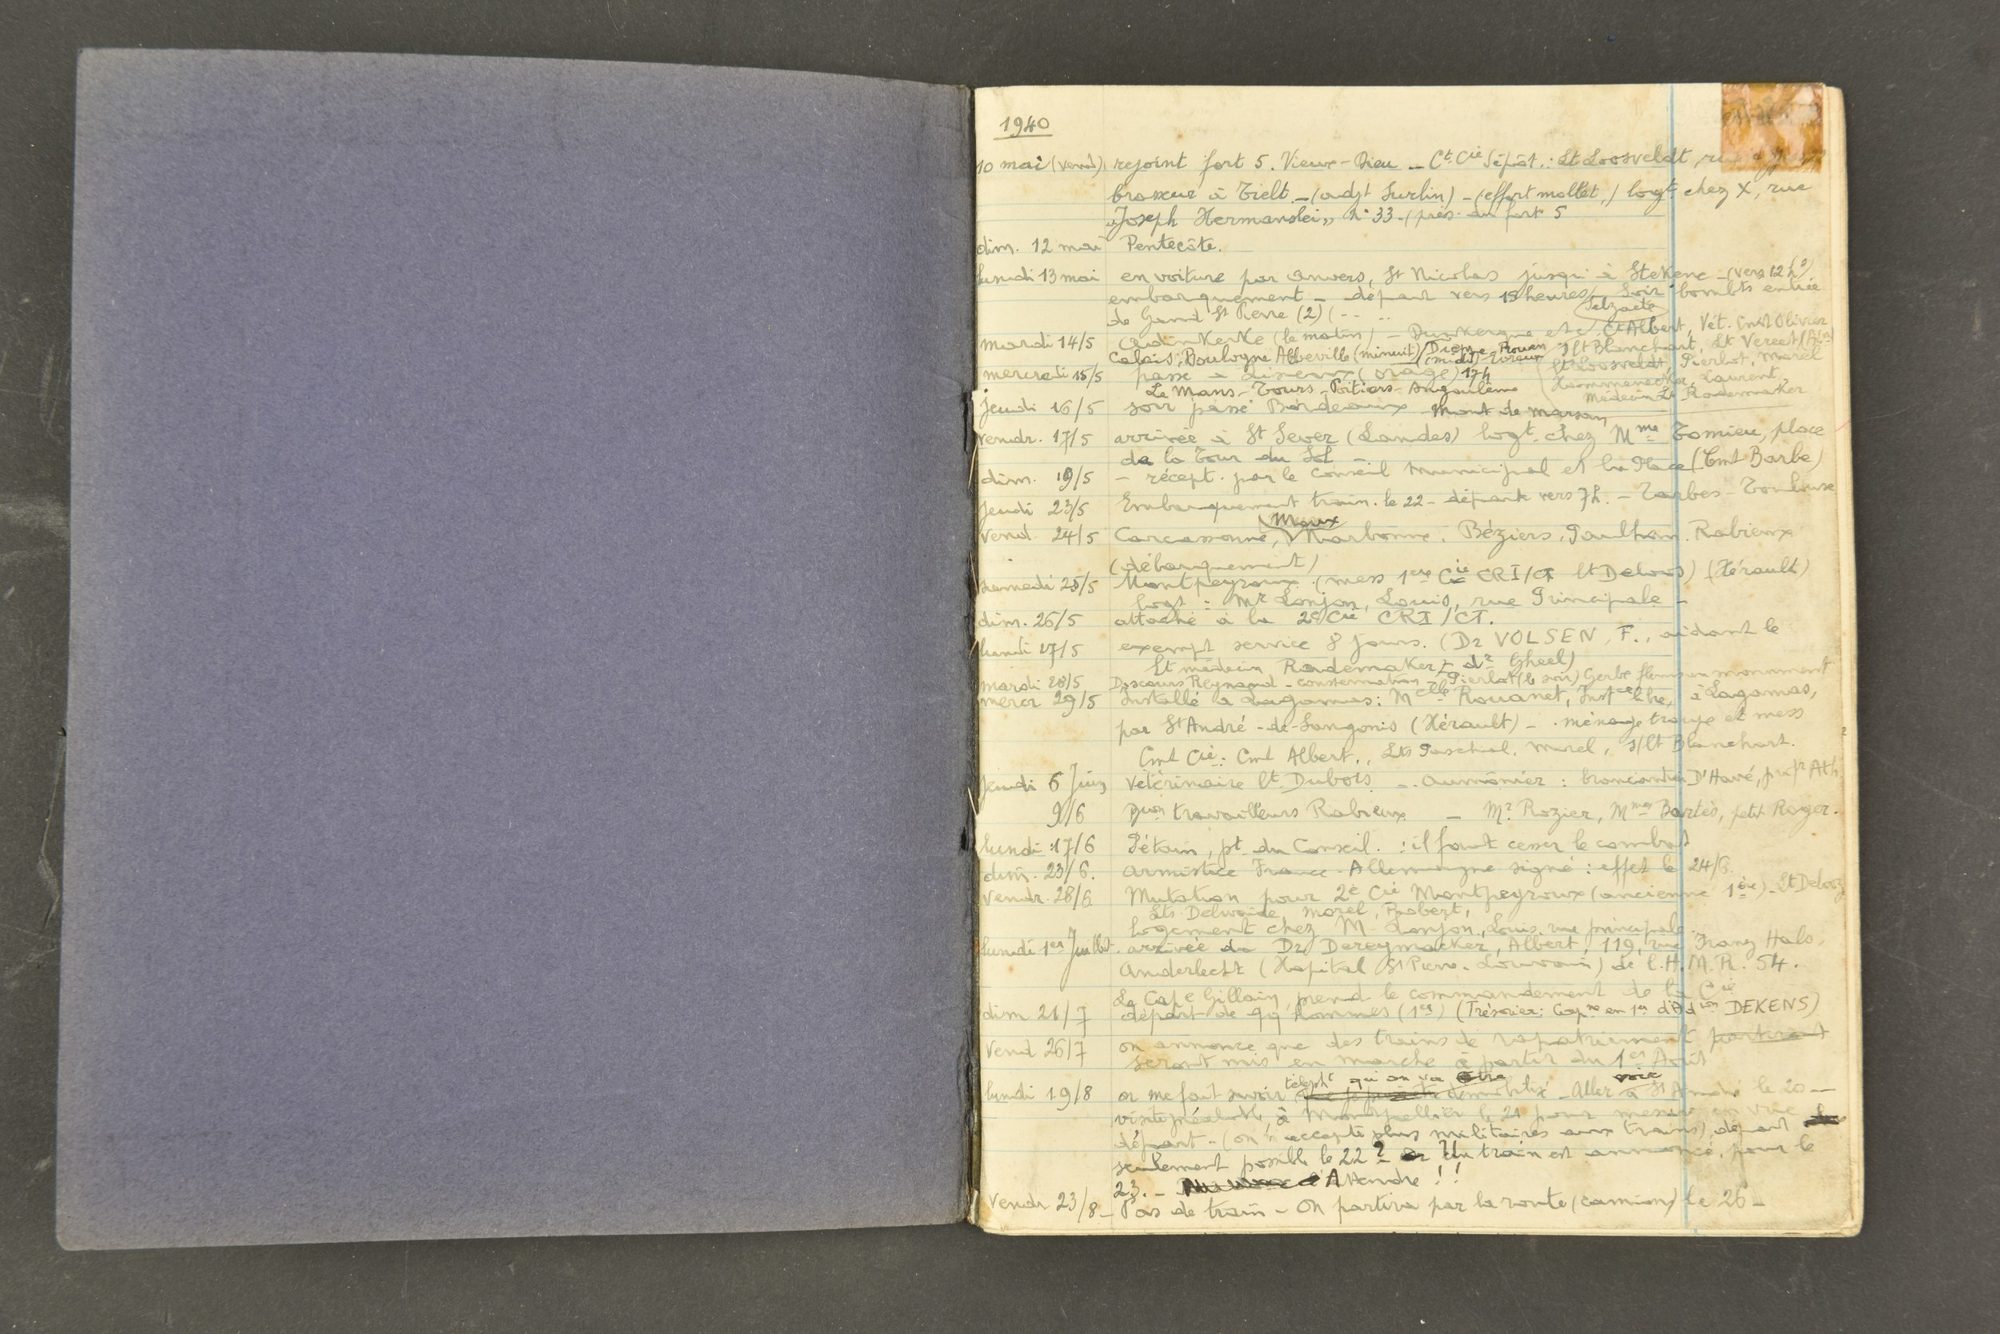 1940
10 mai (vend) rejoint fort 5. Vieux-Dieu - Ct. Cie Dépôt: Lt Loosveldt,
brasseur à Tielt - (adjt Surlin) - (effort mollet,) logt chez X, rue
"Joseph Hermanslei" n° 33 - (près du fort 5
dim. 12 mai Pentecôte.
lundi 13 mai en voiture par Anvers, St Nicolas jusqu'à Stekene - (vers 12 h)
embarquement - départ vers 15 heures / Soir bombts entrée
de Gand St Pierre (2) (- - Selzaete
mardi 14/5 Adinkerke (le matin) - Dunkerque et Ct Albert, Vét. Olivier
Calais, Boulogne Abbeville (minuit) / Dieppe - Rouen (midi) s/lt Blanchart, Lt Vereect
mercredi 15/5 passé à Lisieux (orage) 17h Lt Loosveldt, Pierlot, Morel
Le Mans - Tours - Poitiers - Angoulême Laurent
jeudi 16/5 soir passé Bordeaux - Mont de Marsan Médecin Lt Rademaker
vendr. 17/5 arrivée à St Sever (Landes) logt. chez Mme Tomieu, place
de la Tour du Sol -
dim. 19/5 - récept. par le conseil municipal et la Place (Cmt Barbe)
jeudi 23/5 Embarquement train. le 22 - départ vers 7h. - Tarbes - Toulouse
Moux
vend. 24/5 Carcassonne, Narbonne, Béziers, Paulhan. Rabieux
(débarquement)
samedi 25/5 Montpeyroux (mess 1ère Cie CRI/CT Lt Deloos) (Hérault)
logt : Mr Lonjon, Louis, rue Principale -
dim. 26/5 attaché à la 2e Cie CRI/CT.
lundi 27/5 exempt service 8 jours. (Dr VOLSEN, F., aidant le
Lt médecin Rademaker - dr Gheel)
mardi 28/5 Discours Reynaud - consternation - Pierlot (le soir) Gerbe fleurs au monument
mercr 29/5 Installé à Lagamas: Melle Rouanet, Instce libre, à Lagamas,
par St André-de-Sangonis (Hérault) - ménage troupe et mess
Cmt Cie: Cmt Albert, Lts Paschal, Morel, s/lt Blanchart.
jeudi 6 Juin Vétérinaire Lt. Dubois - Aumônier : D'Havé, profr Ath.
9/6 travailleurs Rabieux - Mr Rozier, Mme Bartès, petit Roger.
lundi 17/6 Pétain, pt du Conseil. : il faut cesser le combat
dim. 23/6. Armistice France - Allemagne signé : effet le 24/6.
vendr. 28/6 Mutation pour 2e Cie Montpeyroux (ancienne 1ère) - Lt Deloos
Lts Delvoide, Morel, Robert,
logement chez M. Lonjon, Louis, rue principale.
lundi 1er Juillet. arrivée du Dr Dereymacker, Albert, 119, rue Franz Hals,
Anderlecht (Hôpital St Pierre - Louvain) de l'H.M.R. 54.
Le Cape Gillain prend le commandement de la Cie
dim 21/7 départ de 99 hommes (1es) (Trésorier: Capne en 1er d'Adion DEKENS)
vend 26/7 on annonce que des trains de rapatriement partiront
seront mis en marche à partir du 1er Août
lundi 19/8 on me fait savoir télépht qu'on va être démobilisé - Aller voir à St André le 20 -
visite préalable à Montpellier le 21 pour mesure en vue
départ - (on n'accepte plus militaires aux trains) départ
seulement possible le 22 ? - Un train est annoncé pour le
23. - Attendre !!
vendr 23/8 - Pas de train - On partira par la route (camion) le 26 -